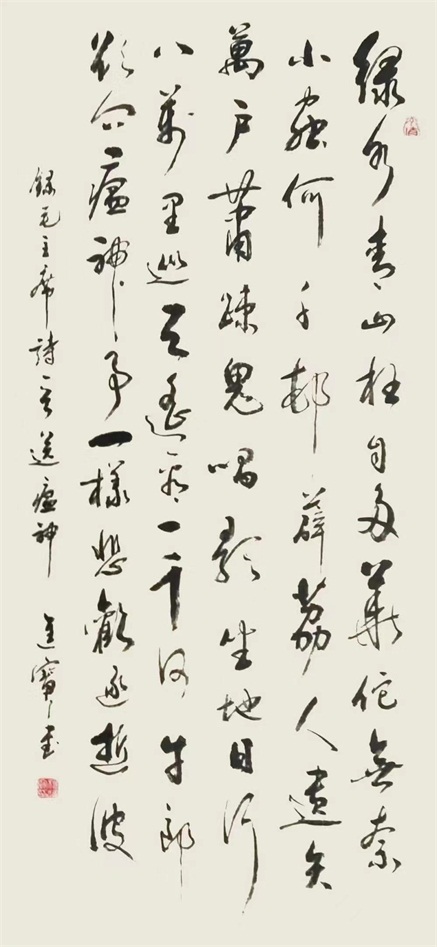 綠水青山枉自多華佗無奈
小蟲何千邨薜荔人遺矢
萬戶蕭疎鬼唱歌坐地日行
八萬里巡天遙看一千河牛郎
欲問瘟神事一樣悲歡逐逝波
錄毛主席詩一首送瘟神 進寶書